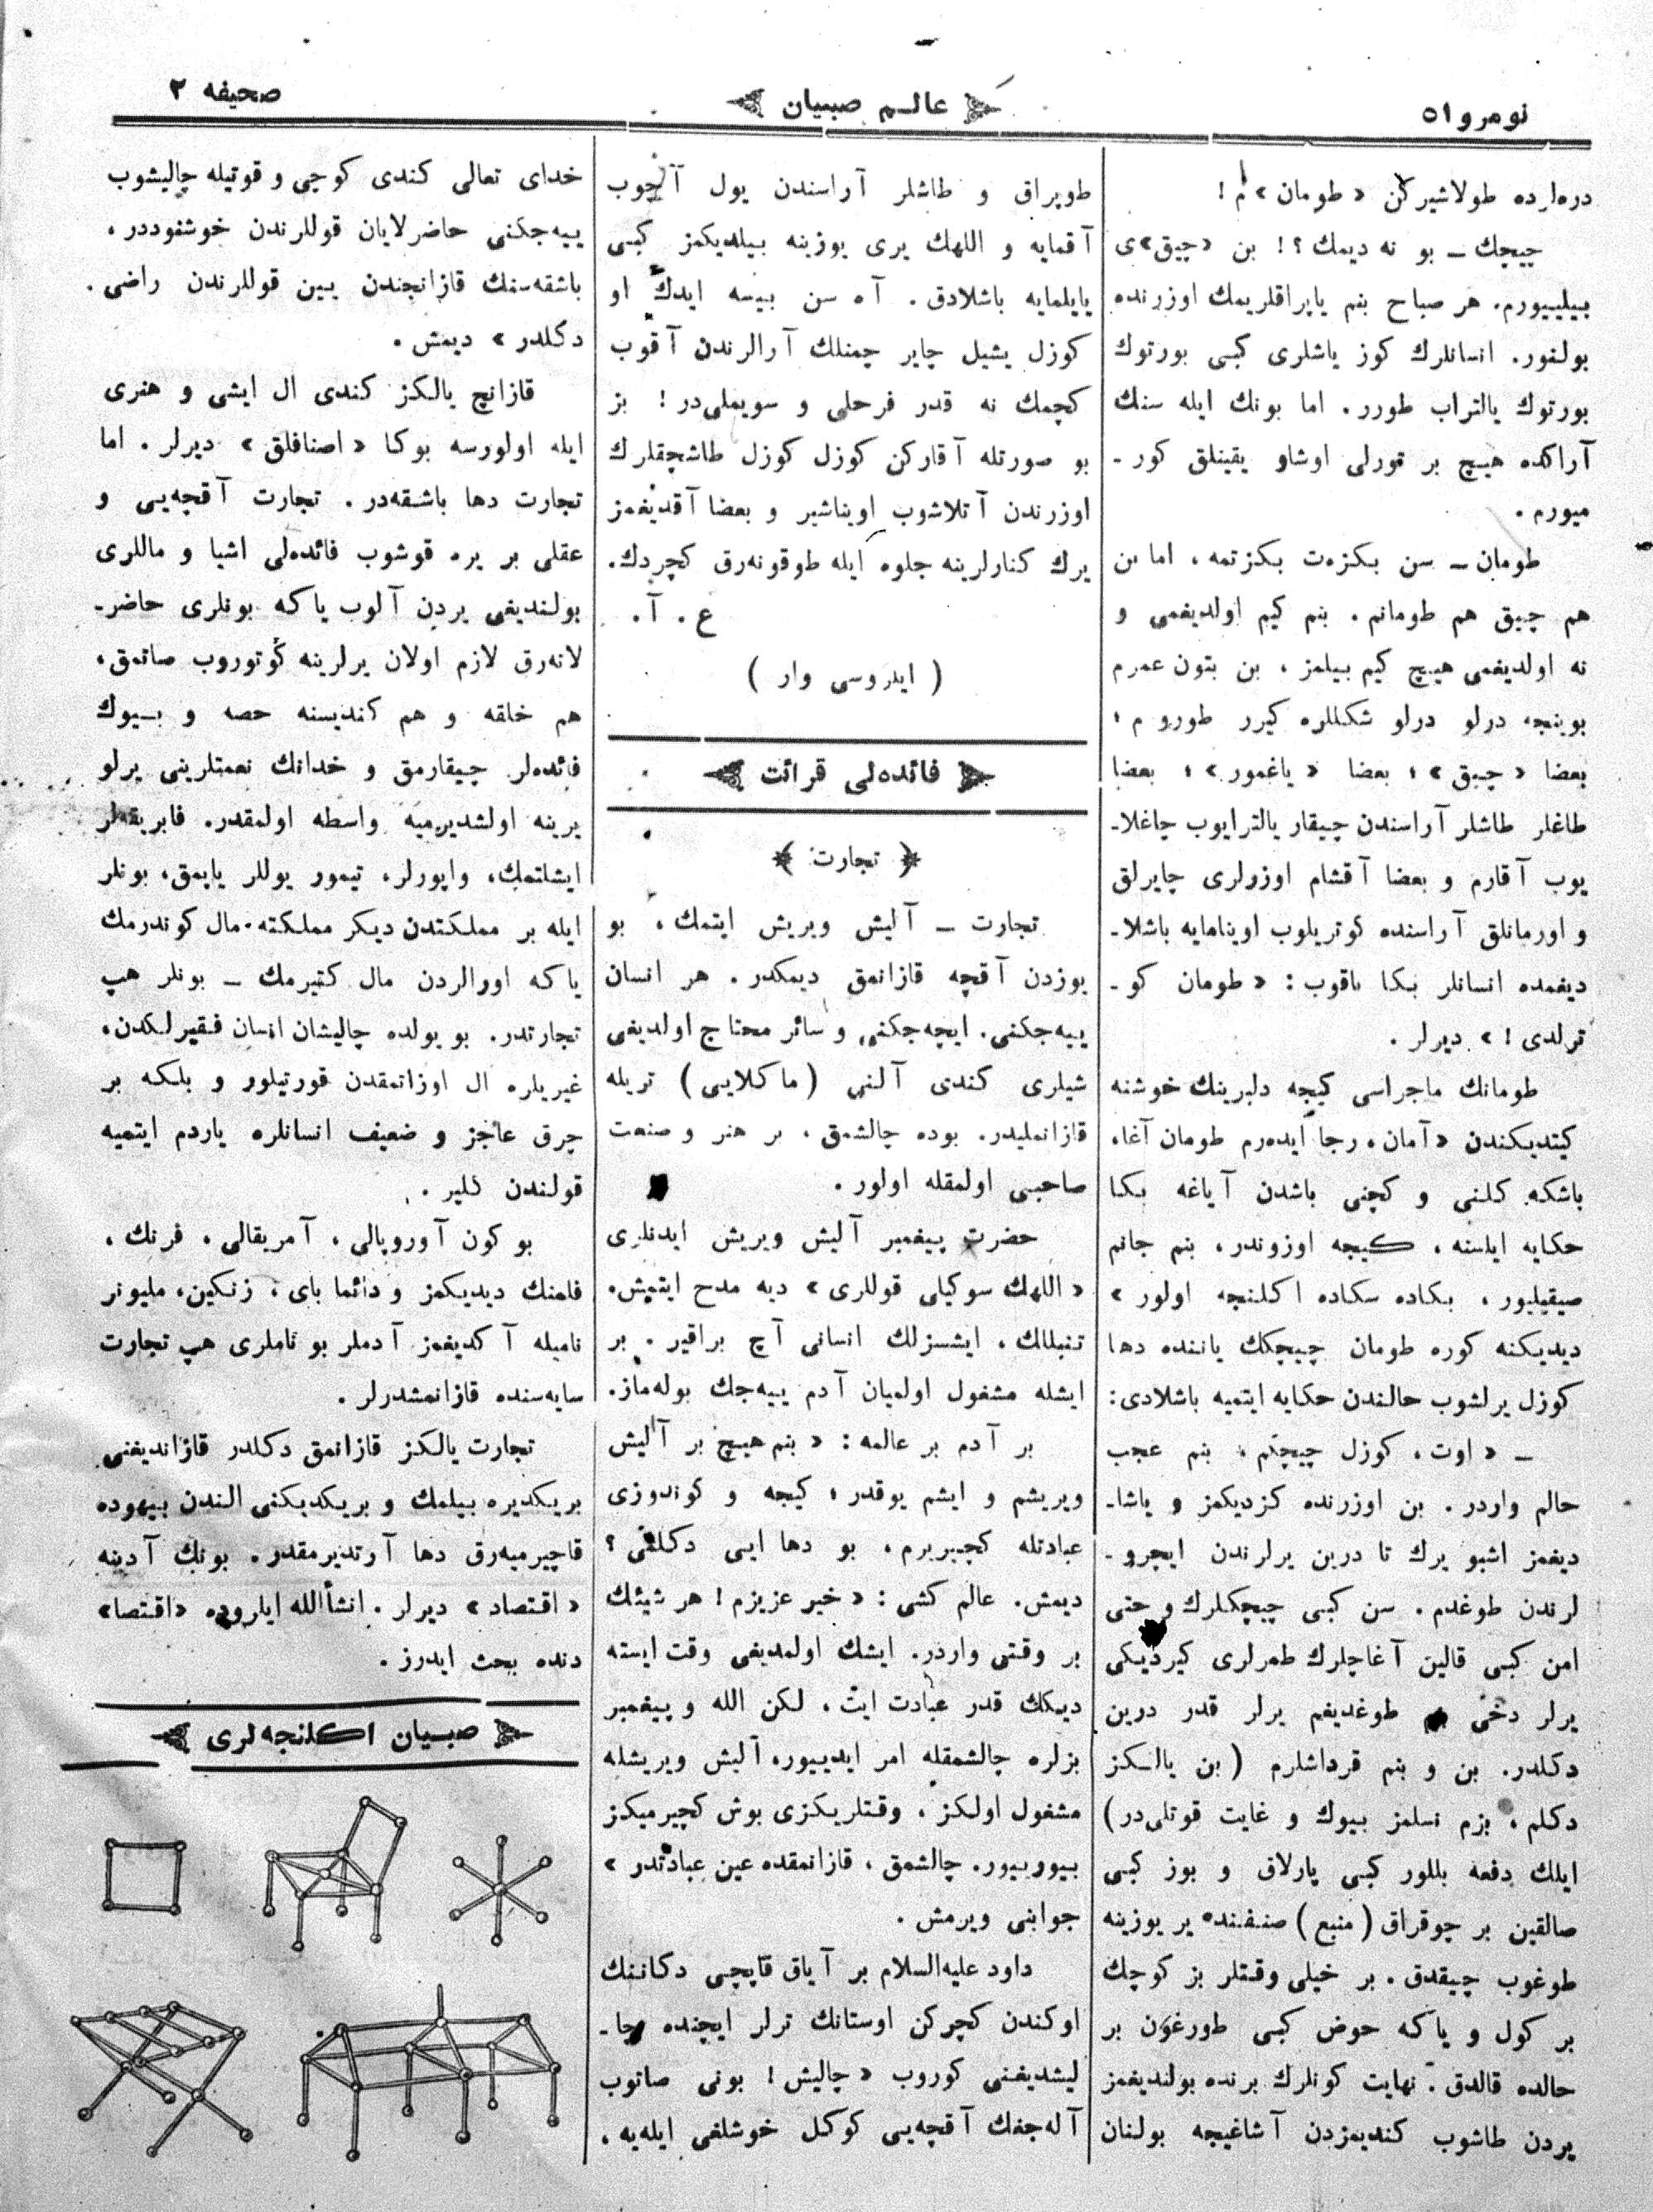 نومرو ٥١
عالم صبیان
صحیفه ٢
دره‌لرده طولاشیركن «طومان» م !
چیچك ــ بو نه دیمك ؟! بن «چیق»ی
بیلییورم. هر صباح بنم یاپراقلریمك اوزرنده
بولنور. انسانلرك كوز یاشلری كبی بورتوك
بورتوك یالتراب طورر. اما بونك ایله سنك
آراكده هیچ بر تورلی اوشاو یقینلق كور ـ
میورم .
طومان ــ سن بكزه‌ت بكزتمه ، اما بن
هم چیق هم طومانم . بنم كیم اولدیغمی و
نه اولدیغمی هیچ كیم بیلمز ، بن بتون عمرم
بوینجه درلو درلو شكللره كیرر طورو م ؛
بعضا «چیق» ؛ بعضا «یاغمور» ؛ بعضا
طاغلر طاشلر آراسندن چیقار یالترایوب چاغلاـ
یوب آقارم و بعضا آقشام اوزرلری چایرلق
و اورمانلق آراسنده كوتریلوب اوینامایه باشلاـ
دیغمده انسانلر بكا باقوب : «طومان كو ـ
ترلدی !» دیرلر .
طومانك ماجراسی كیچه دلبرینك خوشنه
كیتدیكندن «آمان ، رجا ایده‌رم طومان آغا،
باشكه كلنی و كچنی باشدن آیاغه بكا
حكایه ایلسنه ، كیچه اوزوندر ، بنم جانم
صیقیلیور ، بكاده سكاده اكلنجه اولور »
دیدیكنه كوره طومان چیچكك یاننده دها
كوزل یرلشوب حالندن حكایه ایتمیه باشلادی:
ــ «اوت ، كوزل چیچكم ، بنم عجب
حالم واردر . بن اوزرنده كزدیكمز و یاشاـ
دیغمز اشبو یرك تا درین یرلرندن ایچرو ـ
لرندن طوغدم . سن كبی چیچكلرك و حتی
امن كبی قالین آغاچلرك طمرلری كیردیكی
یرلر دخی طوغدیغم یرلر قدر درین
دكلدر. بن و بنم قرداشلرم (بن یالكز
دكلم ، بزم نسلمز بیوك و غایت قوتلی‌در)
ایلك دفعه بللور كبی پارلاق و بوز كبی
صالقین بر چوقراق (منبع) صنفنده یر یوزینه
طوغوب چیقدق . بر خیلی وقتلر بز كوچك
بر كول و یا كه حوض كبی طورغون بر
حالده قالدق . نهایت كونلرك برنده بولندیغمز
یردن طاشوب كندیمزدن آشاغیچه بولنان
طوپراق و طاشلر آراسندن یول آچوب
آقمایه و اللهك یری یوزینه بیلدیكمز كبی
یایلمایه باشلادق . آه سن بیسه ایدك او
كوزل یشیل چایر چمنلك آرالرندن آقوب
كچمك نه قدر فرحلی و سویملی‌در ! بز
بو صورتله آقاركن كوزل كوزل طاشچقلرك
اوزرندن آتلاشوب اویناشیر و بعضا آقدیغمز
یرك كنارلرینه جلوه ایله طوقونه‌رق كچردك.
ع. آ.
( ایدروسی وار )
فائده‌لی قرائت
تجارت
تجارت ــ آلیش ویریش ایتمك ، بو
یوزدن آقچه قازانمق دیمكدر . هر انسان
ییه‌جكنی. ایچه‌جكنی و سائر محتاج اولدیغی
شیلری كندی آلنی (ماكلایی) تریله
قازانملیدر. بوده چالشمق ، بر هنر و صنعت
صاحبی اولمقله اولور .
حضرت پیغمبر آلیش ویریش ایدنلری
«اللهك سوكیلی قوللری» دیه مدح ایتمیش.
تنبللك ، ایشسزلك انسانی آچ براقیر . بر
ایشله مشغول اولمیان آدم ییه‌جك بوله‌ماز.
بر آدم بر عالمه : «بنم هیچ بر آلیش
ویریشم و ایشم یوقدر ؛ كیجه و كوندوزی
عبادتله كچیریرم ، بو دها ایی دكلمی ؟
دیمش. عالم كشی : «خیر عزیزم ! هر شیئك
بر وقتی واردر. ایشك اولمدیغی وقت ایسته
دیكك قدر عبادت ایت ، لكن الله و پیغمبر
بزلره چالشمقله امر ایدییور، آلیش ویریشله
مشغول اولكز ، وقتلریكزی بوش كچیرمیكز
بیوریبور. چالشمق ، قازانمقده عین عبادتدر»
جوابنی ویرمش .
داود علیه‌السلام بر آیاق قاپچی دكاننك
اوكندن كچركن اوستانك ترلر ایچنده چا ـ
لیشدیغنی كوروب «چالیش ! بونی صاتوب
آله‌جغك آقچه‌یی كوكل خوشلغی ایله‌یه ،
خدای تعالی كندی كوجی و قوتیله چالیشوب
ییه‌جكنی حاضرلایان قوللرندن خوشنوددر ،
باشقه‌سنك قازانجندن یین قوللرندن راضی .
دكلدر» دیمش .
قازانچ یالكز كندی ال ایشی و هنری
ایله اولورسه بوكا «اصنافلق» دیرلر . اما
تجارت دها باشقه‌در . تجارت آقچه‌یی و
عقلی بر یره قوشوب فائده‌لی اشیا و ماللری
بولندیغی یردن آلوب یا كه بونلری حاضرـ
لانه‌رق لازم اولان یرلرینه كوتوروب صاتمق،
هم خلقه و هم كندیسنه حصه و بیوك
فائده‌لر چیقارمق و خدانك نعمتلرینی یرلو
یرینه اولشدیرمیه واسطه اولمقدر. فابریقه‌لر
ایشلتمك، واپورلر، تیمور یوللر یاپمق، بونلر
ایله بر مملكتدن دیكر مملكته مال كوندرمك
یا كه اورالردن مال كتیرمك ــ بونلر هپ
تجارتدر. بو یولده چالیشان انسان فقیرلكدن،
غیریلره ال اوزانمقدن قورتیلور و بلكه بر
چرق عاجز و ضعیف انسانلره یاردم ایتمیه
قولندن كلیر .
بو كون آوروپالی ، آمریقالی ، فرنك ،
فلمنك دیدیكمز و دائما بای ، زنكین، ملیونر
نامیله آكدیغمز آدملر بو ناملری هپ تجارت
سایه‌سنده قازانمشدرلر .
تجارت یالكز قازانمق دكلدر قازاندیغنی
بریكدیره بیلمك و بریكدیكنی الندن بیهوده
قاچیرمیه‌رق دها آرتدیرمقدر. بونك آدینه
«اقتصاد» دیرلر . انشأالله ایلروده «اقتصا»
دنده بحث ایدرز .
صبیان اكلنجه‌لری